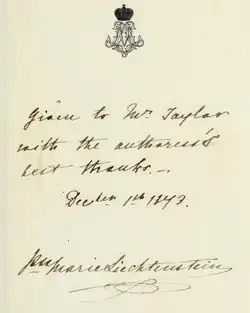 Given to Mr. Taylor
with the authoress's
best thanks.—
Decber 1th 1873.
Marie Liechtenstein